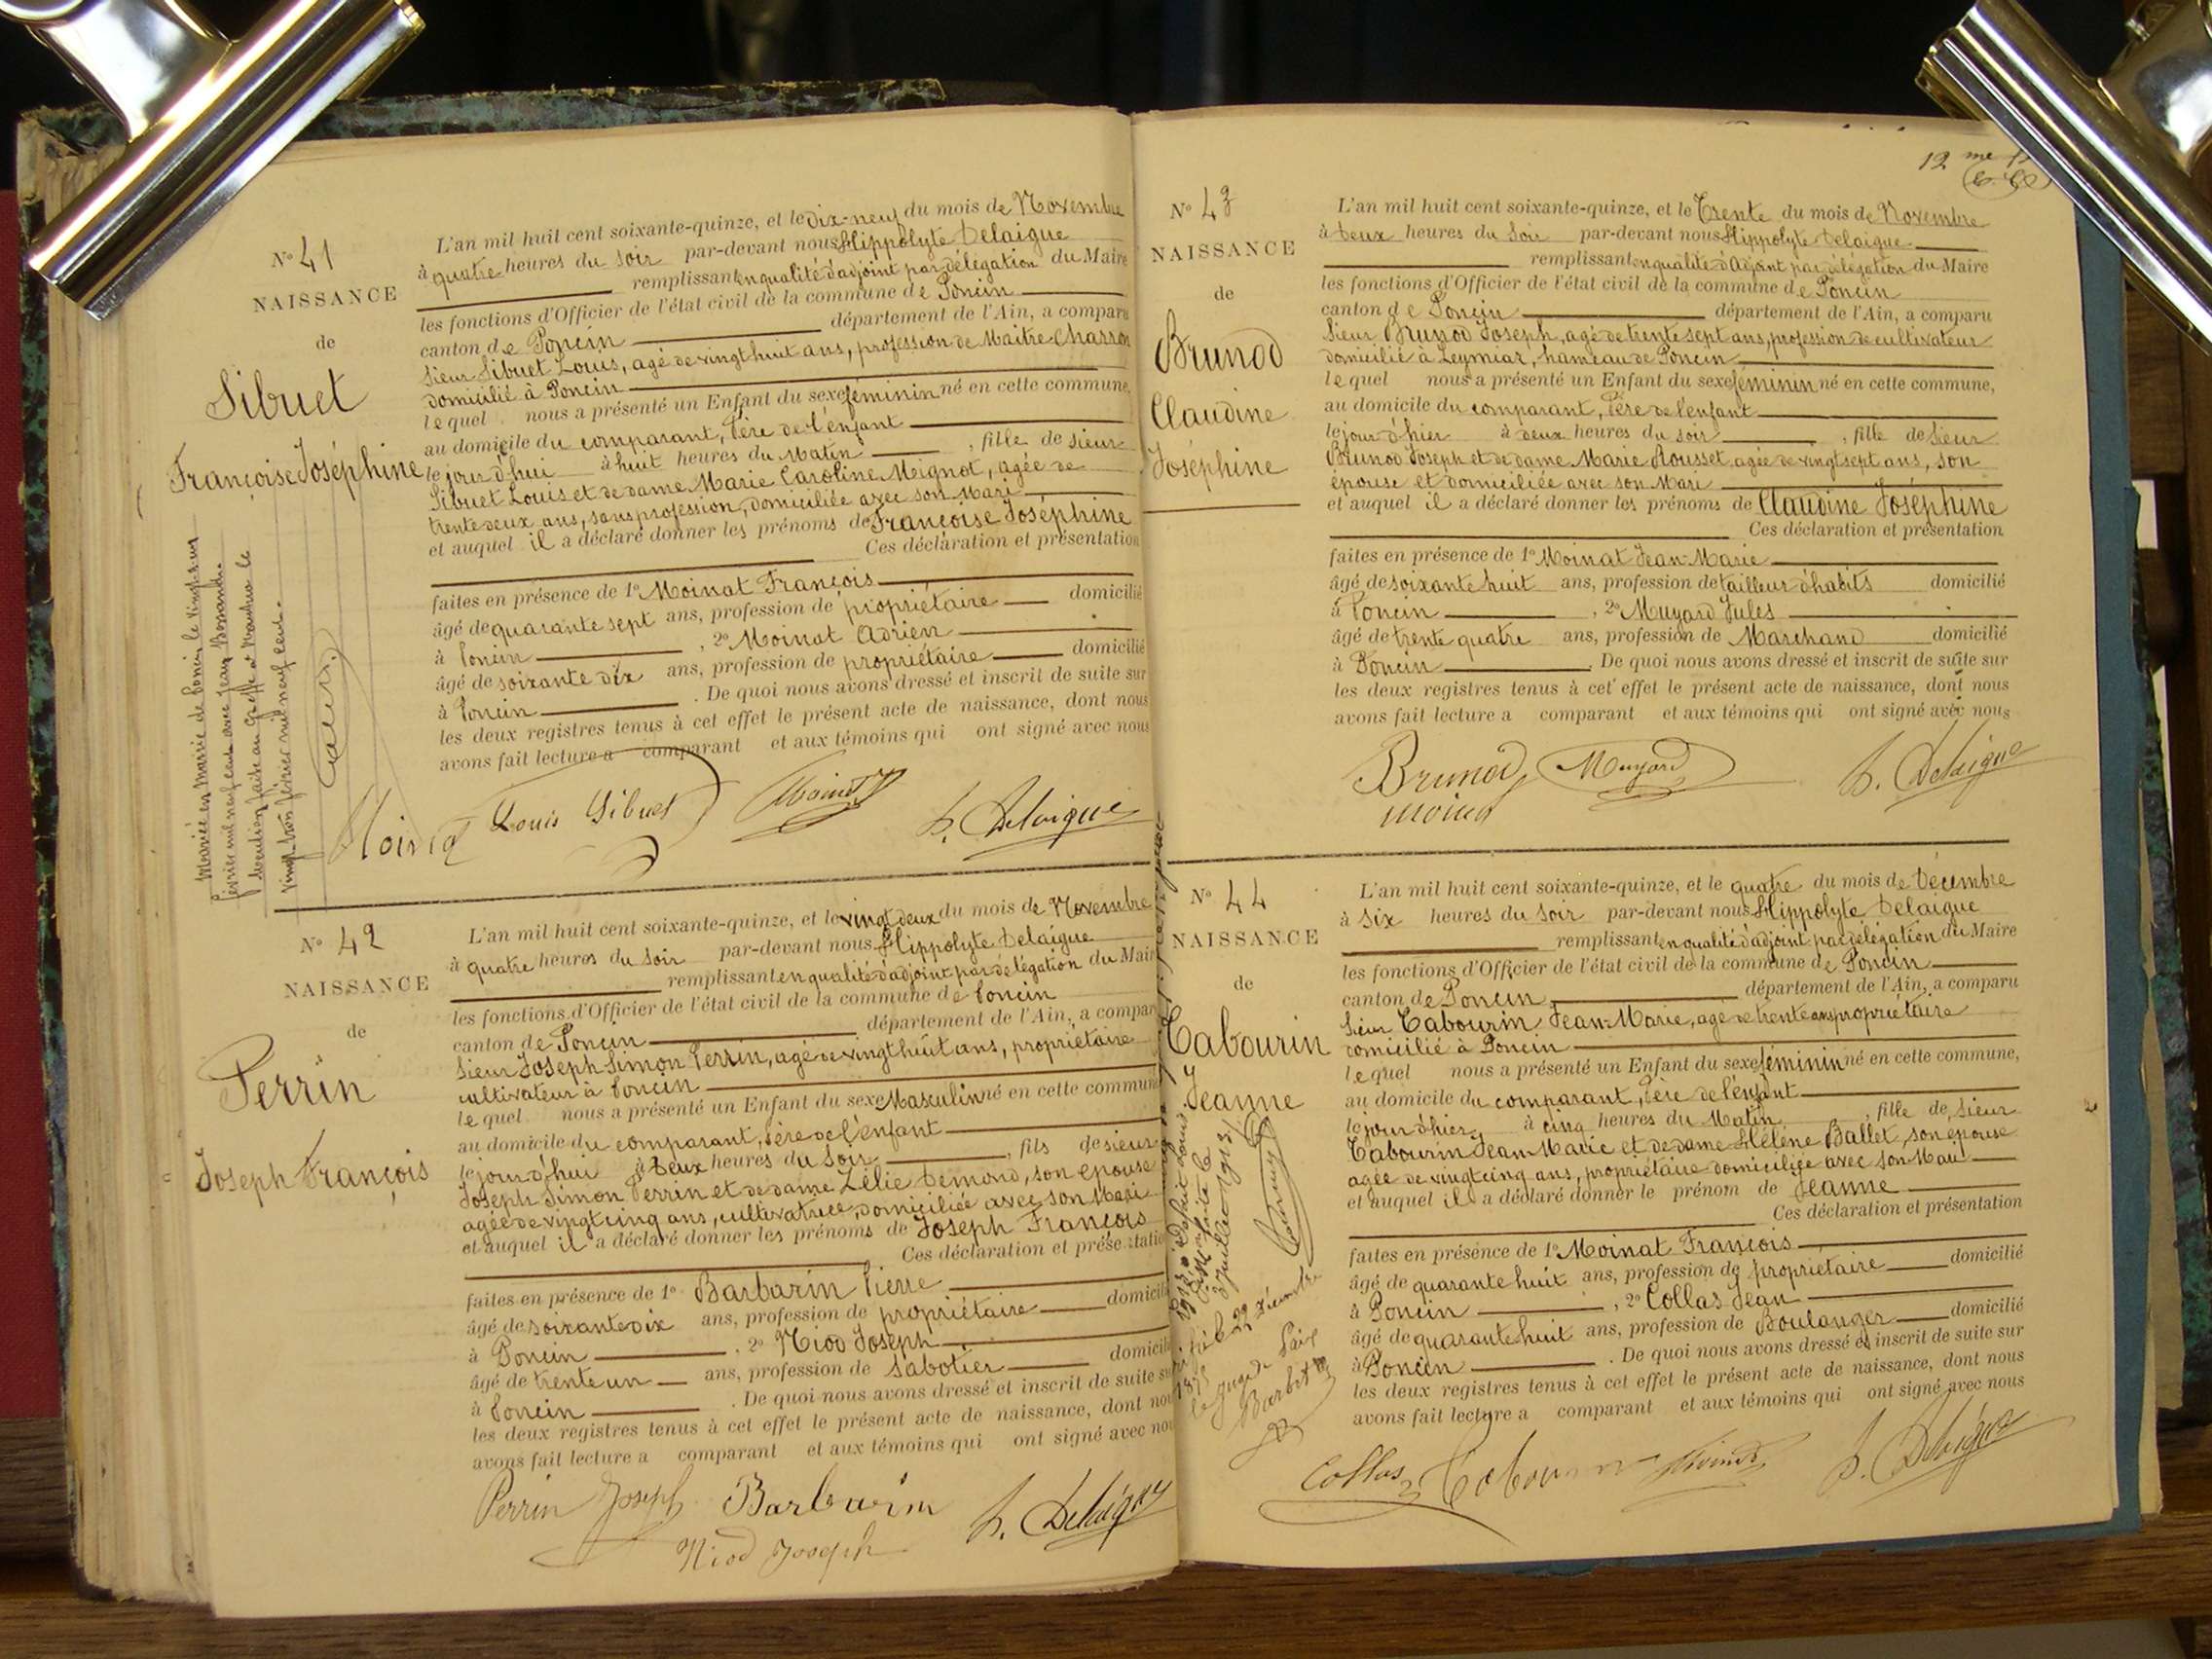 N° 41
NAISSANCE
de
Sibuet
Françoise Joséphine
L'an mil huit cent soixante-quinze, et le dix-neuf du mois de Novembre
à quatre heures du soir par-devant nous Hippolyte Delaigue
remplissant en qualité d'adjoint par délégation du Maire
les fonctions d'Officier de l'état civil de la commune de Poncin
canton de Poncin département de l'Ain, a comparu
Sieur Sibuet Louis, agé de vingt huit ans, profession de Maitre Charron
domicilié à Poncin
lequel nous a présenté un Enfant du sexe féminin né en cette commune,
au domicile du comparant, Père de l'enfant
le jour d'hui à huit heures du Matin , fille de sieur
Sibuet Louis et de dame Marie Caroline Mignot, agée de
trente deux ans, sans profession, domiciliée avec son Mari
et auquel il a déclaré donner les prénoms de Françoise Joséphine
Ces déclaration et présentation
faites en présence de 1° Moinat François
âgé de quarante sept ans, profession de propriétaire domicilié
à Poncin , 2° Moinat Adrien
âgé de soixante dix ans, profession de propriétaire domicilié
à Poncin . De quoi nous avons dressé et inscrit de suite sur
les deux registres tenus à cet effet le présent acte de naissance, dont nous
avons fait lecture a comparant et aux témoins qui ont signé avec nous
Mariée en Mairie de Poncin le vingt-un
février mil neuf cent avec Jean
Mention faite au Greffe de Nantua le
vingt-trois février mil neuf cent.
Moinat Louis Sibuet Moinat h. Delaigue
N° 42
NAISSANCE
de
Perrin
Joseph François
L'an mil huit cent soixante-quinze, et le vingt deux du mois de Novembre
à quatre heures du soir par-devant nous Hippolyte Delaigue
remplissant en qualité d'adjoint par délégation du Mair
les fonctions d'Officier de l'état civil de la commune de Poncin
canton de Poncin département de l'Ain, a compar
Sieur Joseph Simon Perrin, agé de vingt huit ans, propriétaire
cultivateur à Poncin
lequel nous a présenté un Enfant du sexe Masculin né en cette commun
au domicile du comparant, Père de l'enfant
le jour d'hui à deux heures du soir , fils de sieur
Joseph Simon Perrin et de dame Zélie Demond, son épouse
agée de vingt cinq ans, cultivatrice, domiciliée avec son Mari
et auquel il a déclaré donner les prénoms de Joseph François
Ces déclaration et présentatio
faites en présence de 1° Barbarin Pierre
âgé de soixante dix ans, profession de propriétaire domicili
à Poncin , 2° Niod Joseph
âgé de trente un ans, profession de sabotier domicili
à Poncin . De quoi nous avons dressé et inscrit de suite su
les deux registres tenus à cet effet le présent acte de naissance, dont no
avons fait lecture a comparant et aux témoins qui ont signé avec no
Perrin Joseph Barbarin h. Delaigue
Niod Joseph
12 me
N° 43
NAISSANCE
de
Brunod
Claudine
Joséphine
L'an mil huit cent soixante-quinze, et le Trente du mois de Novembre
à deux heures du soir par-devant nous Hippolyte Delaigue
remplissant en qualité d'adjoint par délégation du Maire
les fonctions d'Officier de l'état civil de la commune de Poncin
canton de Poncin département de l'Ain, a comparu
Sieur Brunod Joseph, agé de trente sept ans, profession de cultivateur
domicilié à Leymiat, hameau de Poncin
lequel nous a présenté un Enfant du sexe féminin né en cette commune,
au domicile du comparant, Père de l'enfant
le jour d'hier à deux heures du soir , fille de sieur
Brunod Joseph et de dame Marie Rousset, agée de vingt sept ans, son
épouse et domiciliée avec son Mari
et auquel il a déclaré donner les prénoms de Claudine Joséphine
Ces déclaration et présentation
faites en présence de 1° Moinat Jean-Marie
âgé de soixante huit ans, profession de tailleur d'habits domicilié
à Poncin , 2° Muyard Jules
âgé de trente quatre ans, profession de Marchand domicilié
à Poncin . De quoi nous avons dressé et inscrit de suite sur
les deux registres tenus à cet effet le présent acte de naissance, dont nous
avons fait lecture a comparant et aux témoins qui ont signé avec nous
Brunod Muyard h. Delaigue
Moinat
N° 44
NAISSANCE
de
Tabourin
Jeanne
L'an mil huit cent soixante-quinze, et le quatre du mois de Décembre
à six heures du soir par-devant nous Hippolyte Delaigue
remplissant en qualité d'adjoint par délégation du Maire
les fonctions d'Officier de l'état civil de la commune de Poncin
canton de Poncin département de l'Ain, a comparu
Sieur Tabourin Jean-Marie, agé de trente ans propriétaire
domicilié à Poncin
lequel nous a présenté un Enfant du sexe féminin né en cette commune,
au domicile du comparant, Père de l'enfant
le jour d'hier à cinq heures du Matin , fille de sieur
Tabourin Jean Marie et de dame Hélène Ballet, son épouse
agée de vingt cinq ans, propriétaire domiciliée avec son Mari
et auquel il a déclaré donner le prénom de Jeanne
Ces déclaration et présentation
faites en présence de 1° Moinat François
âgé de quarante huit ans, profession de propriétaire domicilié
à Poncin , 2° Collas Jean
âgé de quarante huit ans, profession de Boulanger domicilié
à Poncin . De quoi nous avons dressé et inscrit de suite sur
les deux registres tenus à cet effet le présent acte de naissance, dont nous
avons fait lecture a comparant et aux témoins qui ont signé avec nous
le 29 Décembre
1875
le Juge de Paix
Collas Tabourin Moinat h. Delaigue